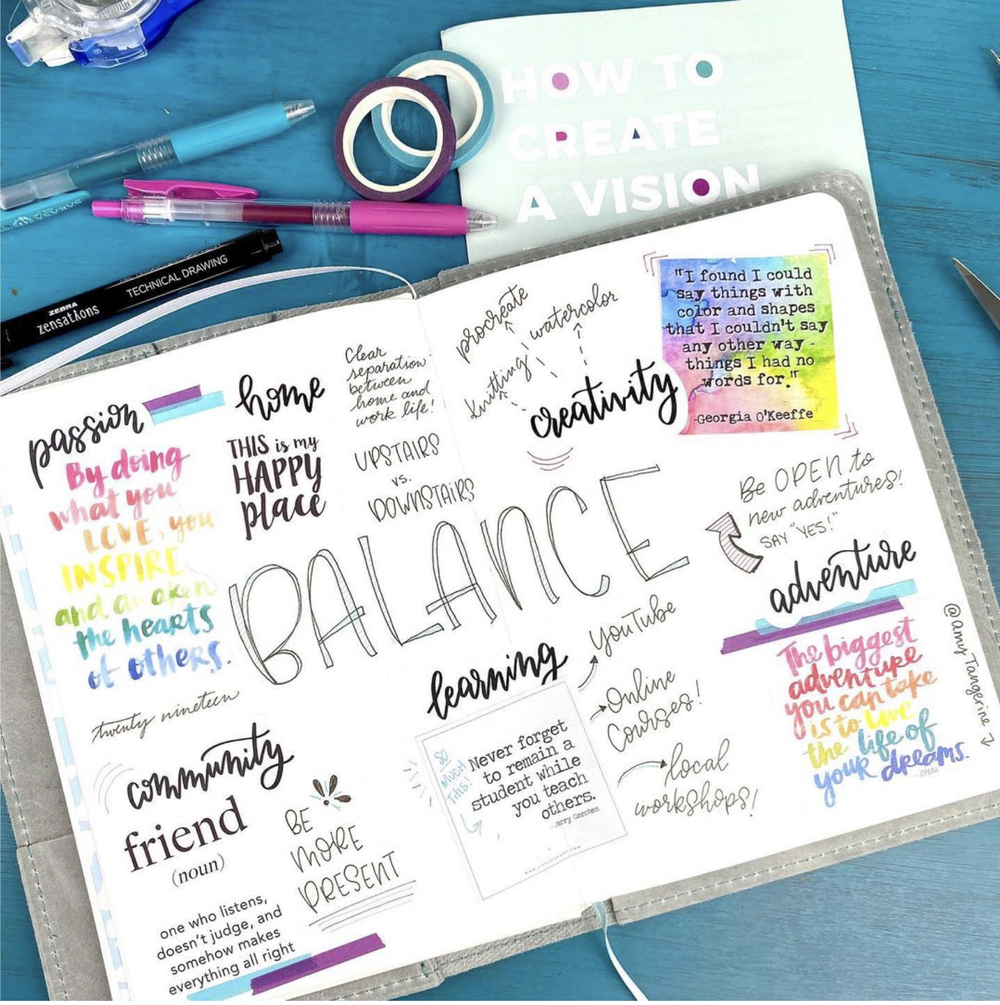 HOW TO
CREATE
A VISION
ZEBRA
zensations
TECHNICAL DRAWING
passion
By doing
what you
LOVE, you
INSPIRE
and awaken
the hearts
of others.
home
THIS is my
HAPPY
place
Clear
separation
between
home and
work life!
UPSTAIRS
vs.
DOWNSTAIRS
procreate
watercolor
knitting
creativity
"I found I could
say things with
color and shapes
that I couldn't say
any other way -
things I had no
words for."
-Georgia O'Keeffe
BALANCE
Be OPEN to
new adventures!
SAY "YES!"
adventure
The biggest
adventure
you can take
is to live
the life of
your dreams.
-OPRAH
@amyTangerine
twenty nineteen
community
friend
(noun)
one who listens,
doesn't judge, and
somehow makes
everything all right
BE
MORE
PRESENT
learning
SO
MUCH
THIS!
Never forget
to remain a
student while
you teach
others.
YouTube
Online
Courses!
local
workshops!